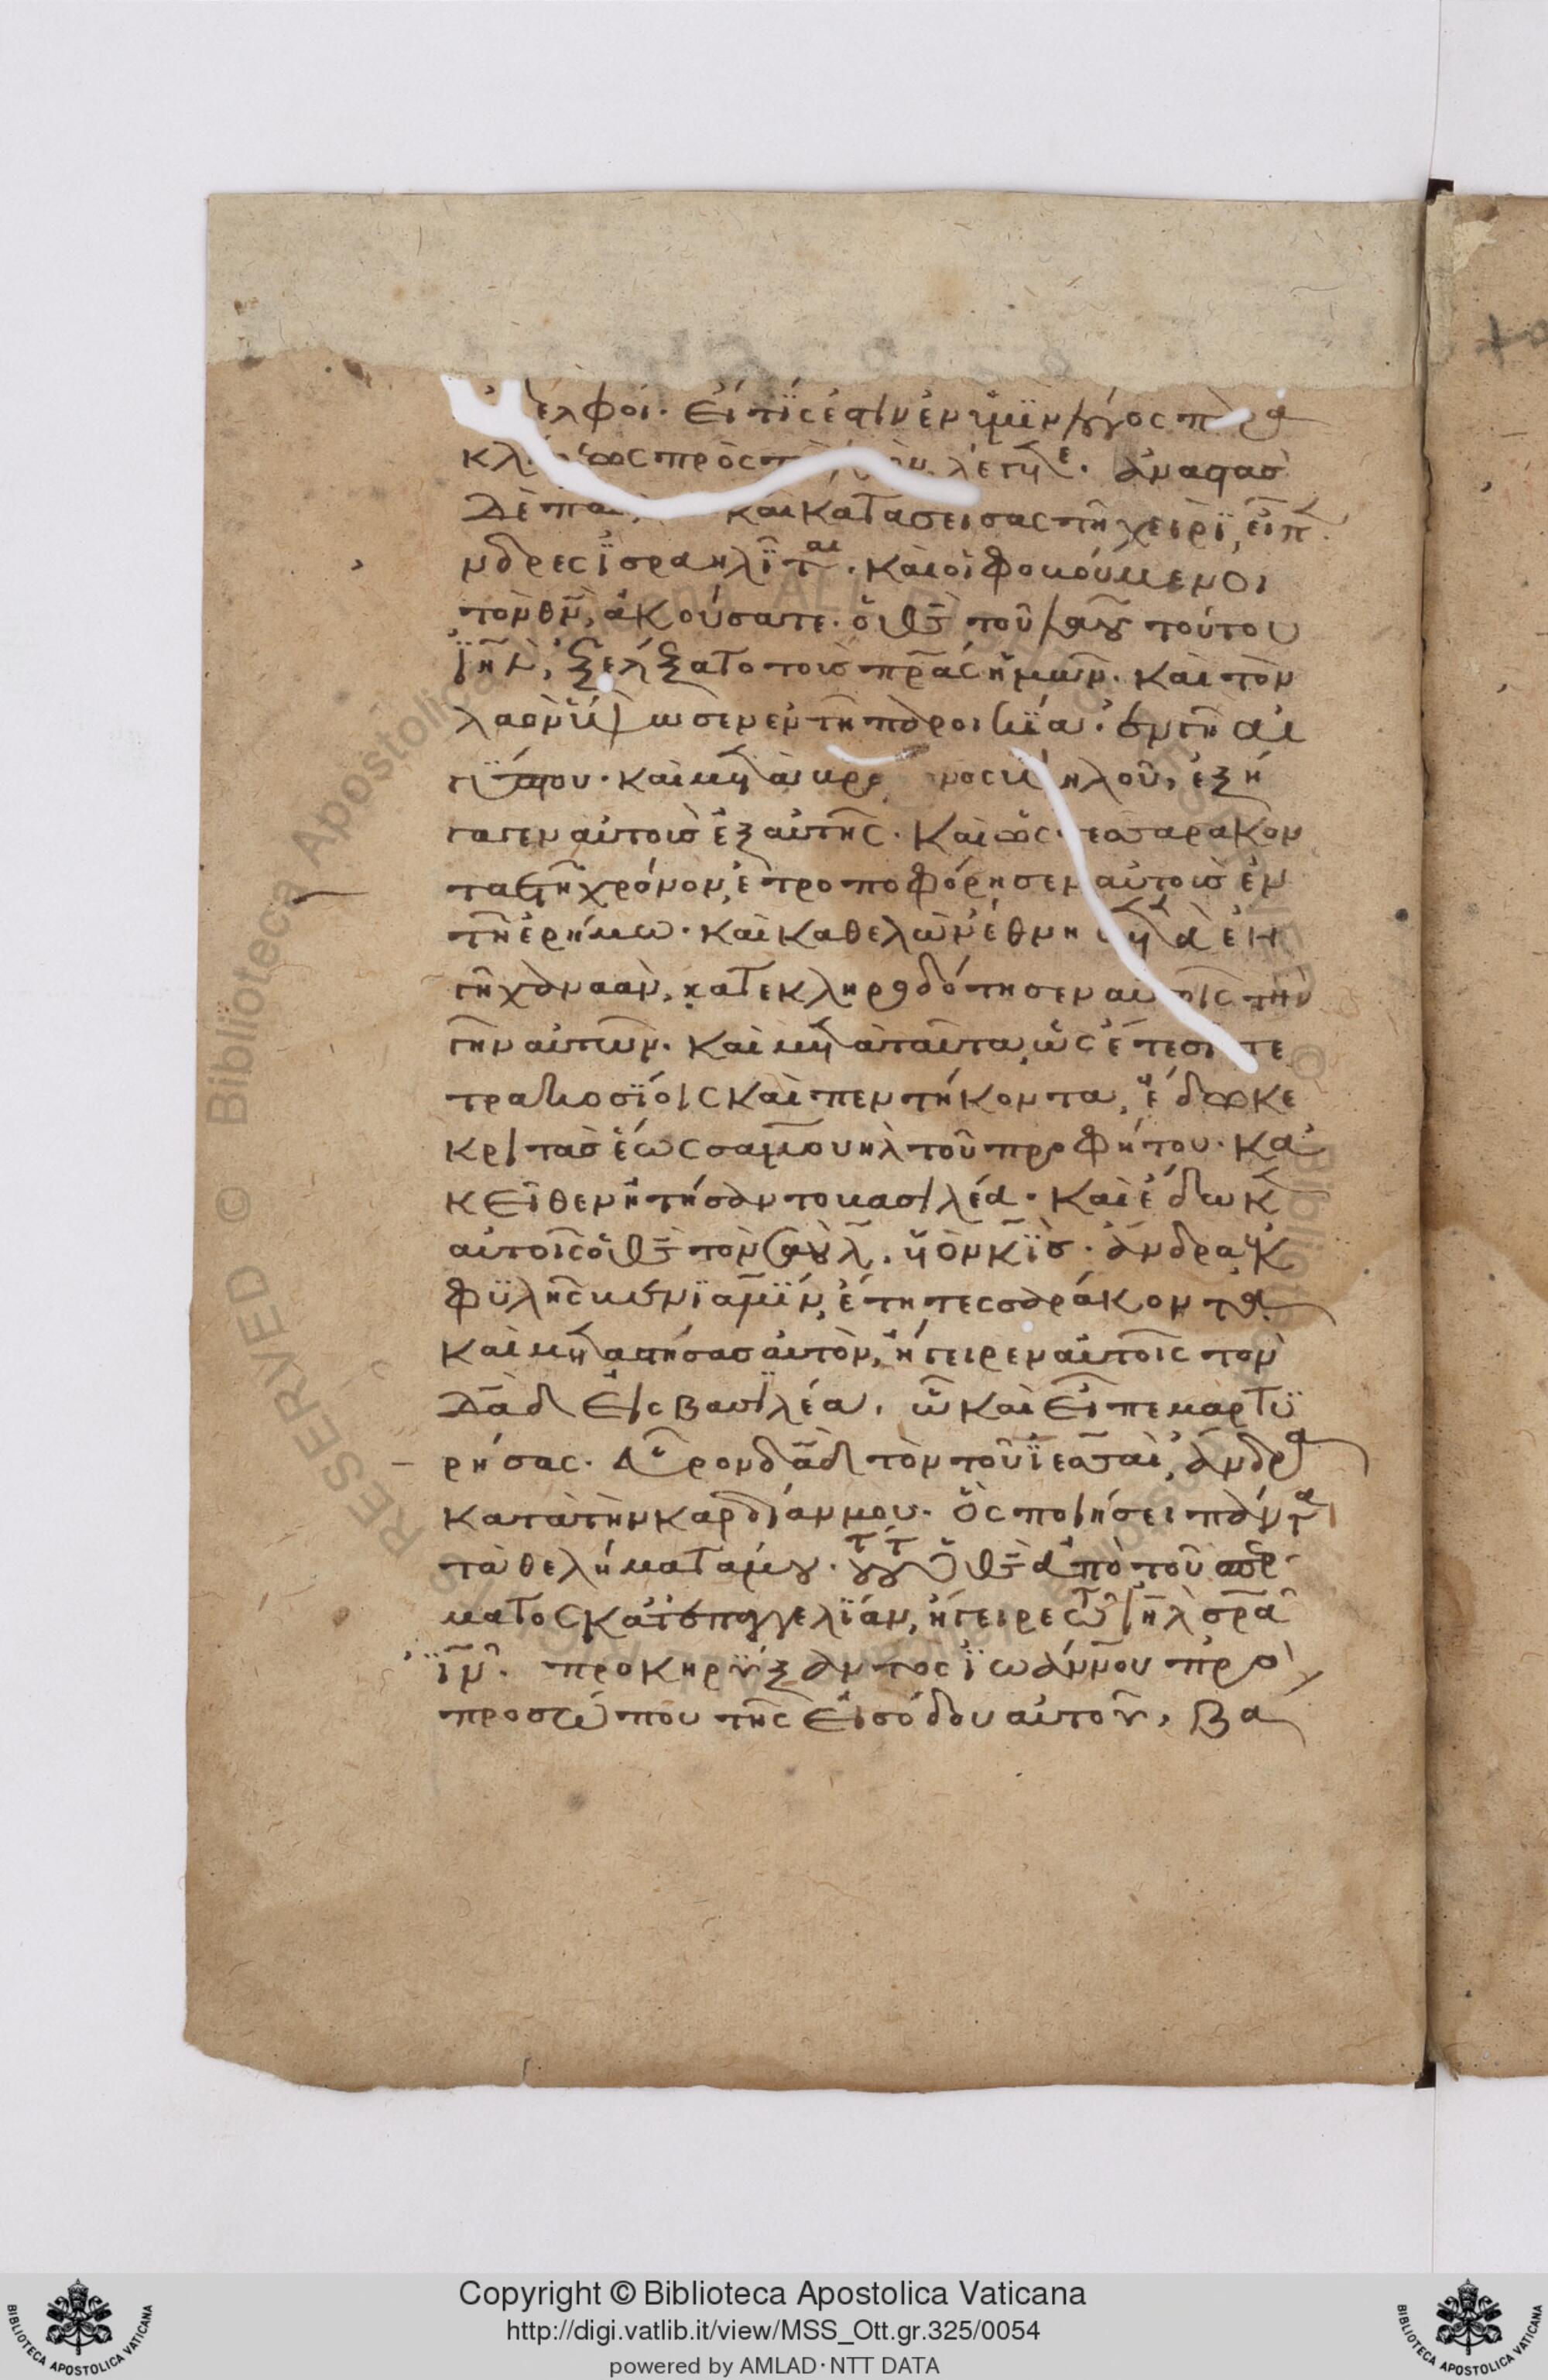 ἀδελφοί. εἴ τϊς ἐστὶν ἐν ὑμῖν λόγος παρα
κλήσεως πρὸς τὸν λαὸν λέγετε. ἀναστὰσ
δὲ παῦλος καὶ κατασεισας τῆ χειρῒ, εἶπ
νδρες ϊσραηλῖται. καὶ οἱ φοβούμενοι
τὸν θν, ἀκούσατε. ὁ θς τοῦ λαοῦ τούτου
ϊηλ, ἐξελέξατο τοὺσ πρας ἡμῶν. καὶ τὸν
λαὸν ὕψωσεν ἐν τῆ παροικία. ἐν γῆ αἰ
γύπτου. καὶ μετὰ βραχίονος ὑψηλοῦ, ἐξή
γαγεν αὐτοὺσ ἐξ αὐτῆς. καὶ ὡς τεσσαρακον
ταετῆ χρόνον, ἐτροποφόρησεν αὐτοὺσ ἐν
τῆ ἐρήμω. καὶ καθελὼν ἔθνη ἑπτὰ ἐν
γῆ χαναὰν, κατεκληροδότησεν αὐτοῖς τὴν
γῆν αὐτῶν. καὶ μετὰ ταῦτα, ὡς ἔτεσι τε
τρακοσϊοις καὶ πεντήκοντα, ἔδωκε
κριτὰσ ἕως σαμουὴλ τοῦ προφήτου. κα
κεῖθεν ἠτήσαντο βασιλέα. καὶ ἔδωκ
αὐτοῖς ὁ θς τὸν σαοὺλ. υἱὸν κῒσ. ἄνδρα ἐκ
φϋλῆς βενϊαμΐν, ἔτη τεσσαράκοντα
καὶ μεταστήσασ αὐτὸν, ἤγειρεν αὐτοῖς τὸν
δαδ εἰς βασιλέα, ὧ καὶ εἶπε μαρτϋ
ρήσας. εὗρον δαδ τὸν τοῦ ϊεσσαὶ, ἄνδρα
κατὰ τὴν καρδίαν μου. ὃς ποιήσει πάντα
τὰ θελήματά μου. τούτου ὁ θς ἀπὸ τοῦ σπερ
ματος κατ' ἐπαγγελΐαν, ἤγειρε τῶ ϊηλ σρα
ϊν. προκηρύξαντος ϊωάννου πρὸ
προσώπου τῆς εἰσόδου αὐτοῦ, βα
Copyright © Biblioteca Apostolica Vaticana
http://digi.vatlib.it/view/MSS_Ott.gr.325/0054
powered by AMLAD·NTT DATA